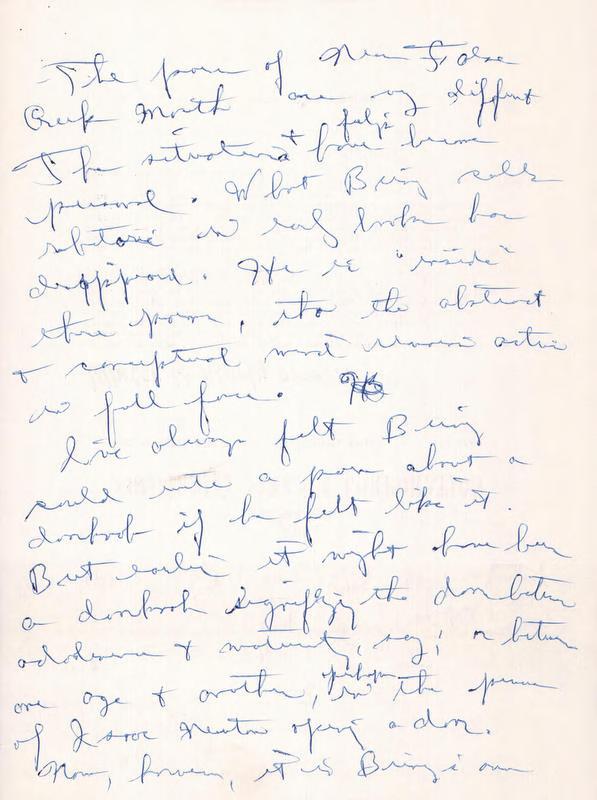 The poems of New False
Creek Mouth are very different
The situations & feelings have become
personal. What Bering calls
rhetoric in early books has
disappeared. He is "inside"
these poems, tho the abstract
& conceptual mind remains active
in full force.
I've always felt Bering
could write a poem about a
doorknob if he felt like it.
But earlier it might have been
a doorknob signifying the door between
adolescence & maturity, say; or between
one age & another, perhaps in the person
of Isaac Newton opening a door.
Now, however, it is Bering's own